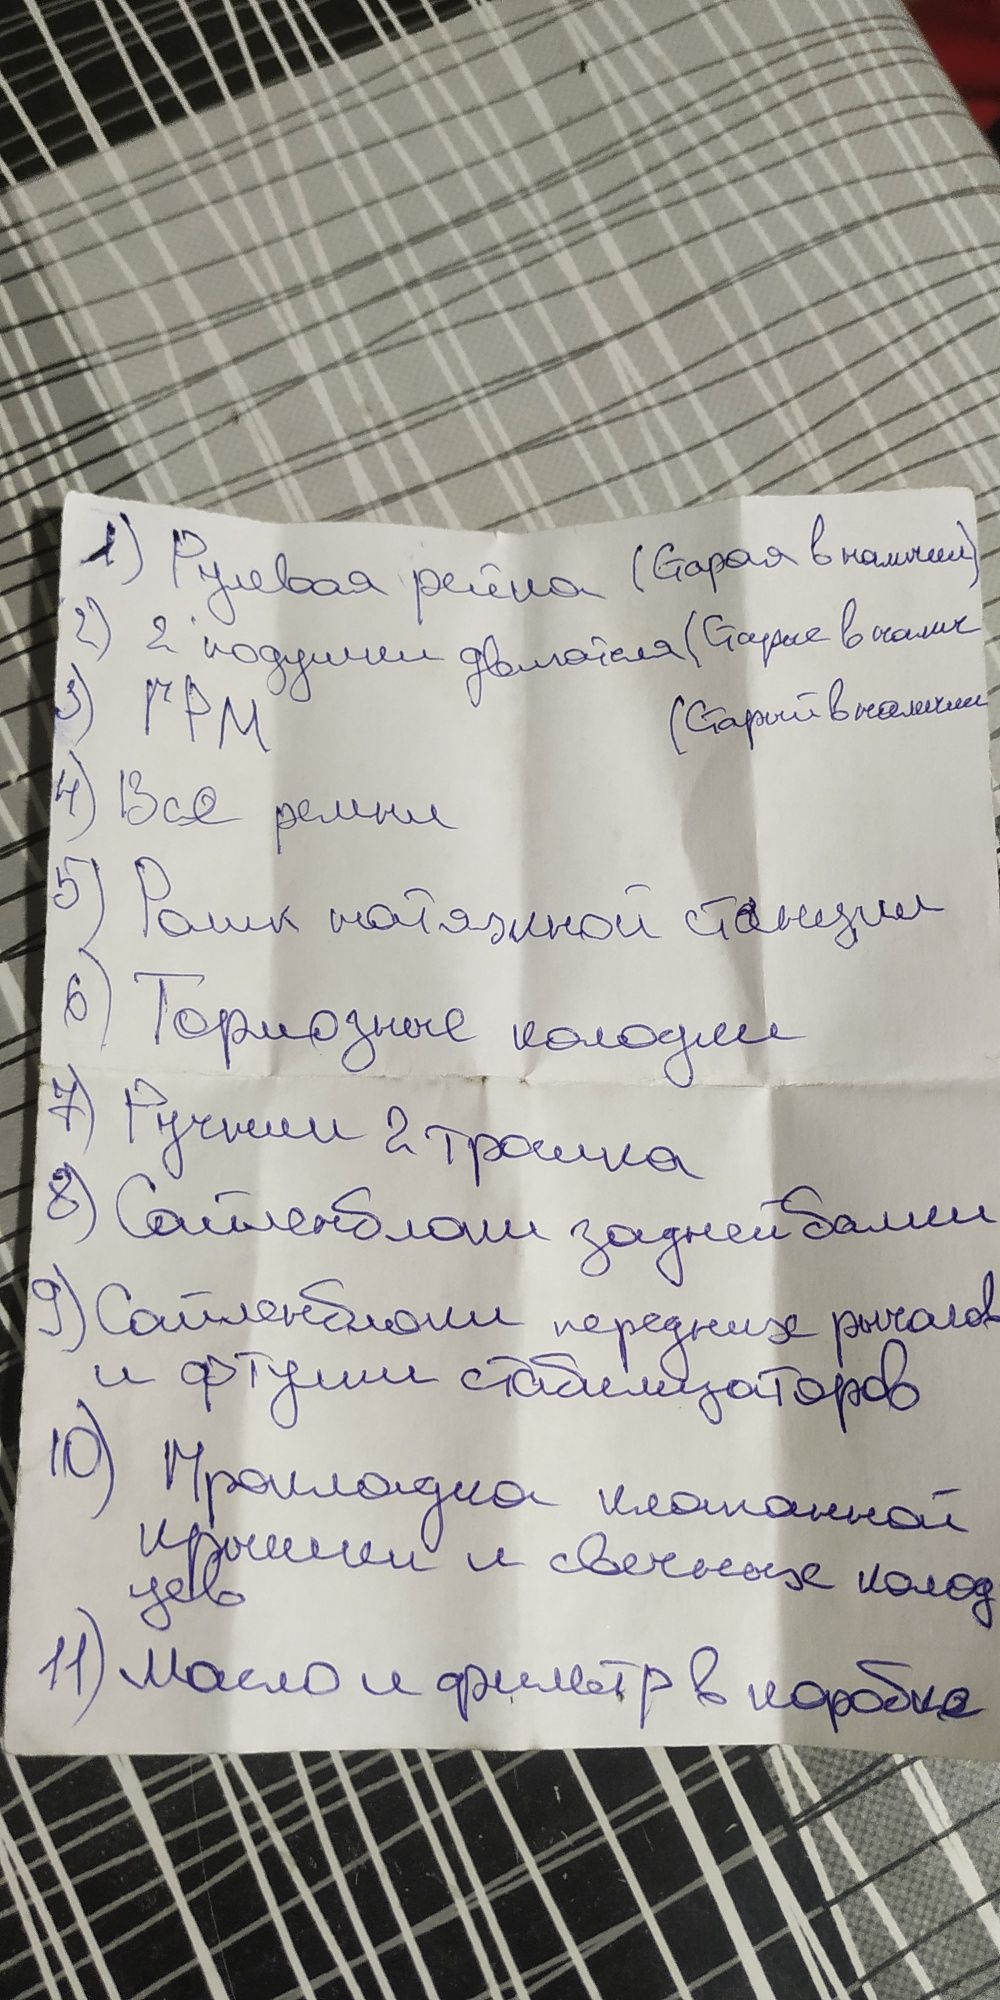 1) Рулевая рейка (Старая в наличии)
2) 2 подушки двигателя (Старые в налич
3) ГРМ (Старый в наличии
4) Все ремни
5) Ролик натяжной станции
6) Тормозные колодки
7) Ручники 2 тросика
8) Сайленблоки задней балки
9) Сайленблоки передних рычагов
и втулки стабилизаторов
10) Прокладка клапанной
крышки и свечных колод
цев
11) Масло и фильтр в коробке